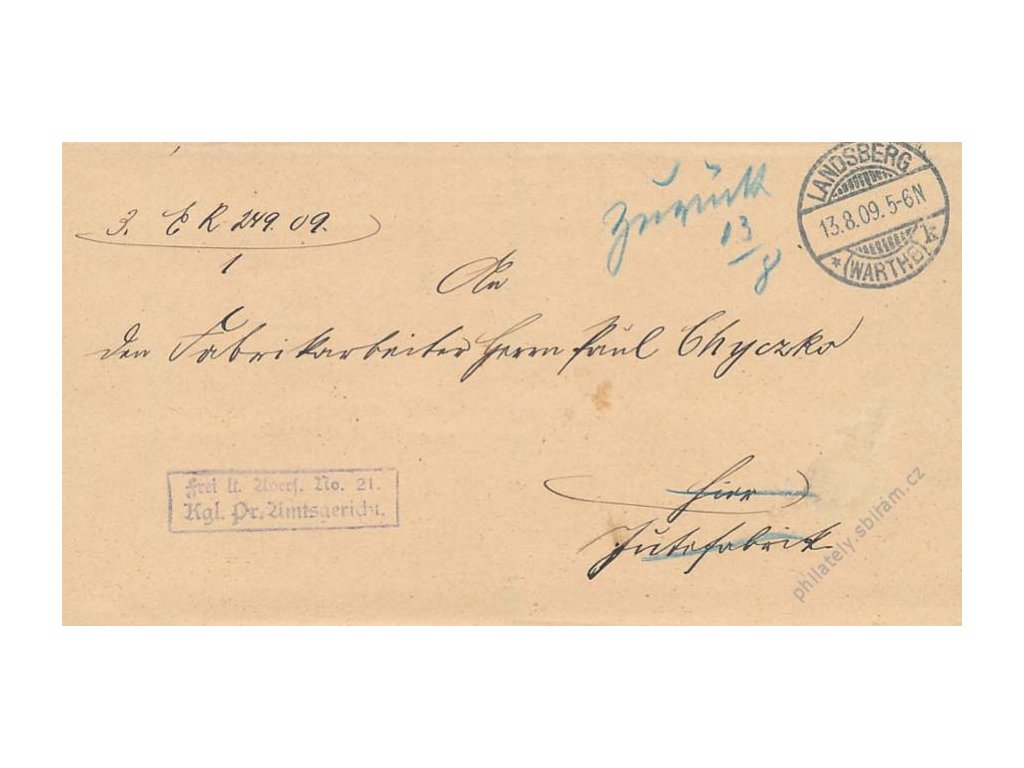 3. E R 249. 09.
1
Zurück
13/8
LANDSBERG
13.8.09. 5-6N
* (WARTHE) k
An
den Fabrikarbeiter Herrn Paul Chyczko
Hier
Jutefabrik
Frei lt. Avers. No. 21.
Kgl. Pr. Amtsgericht.
philately.sbiram.cz